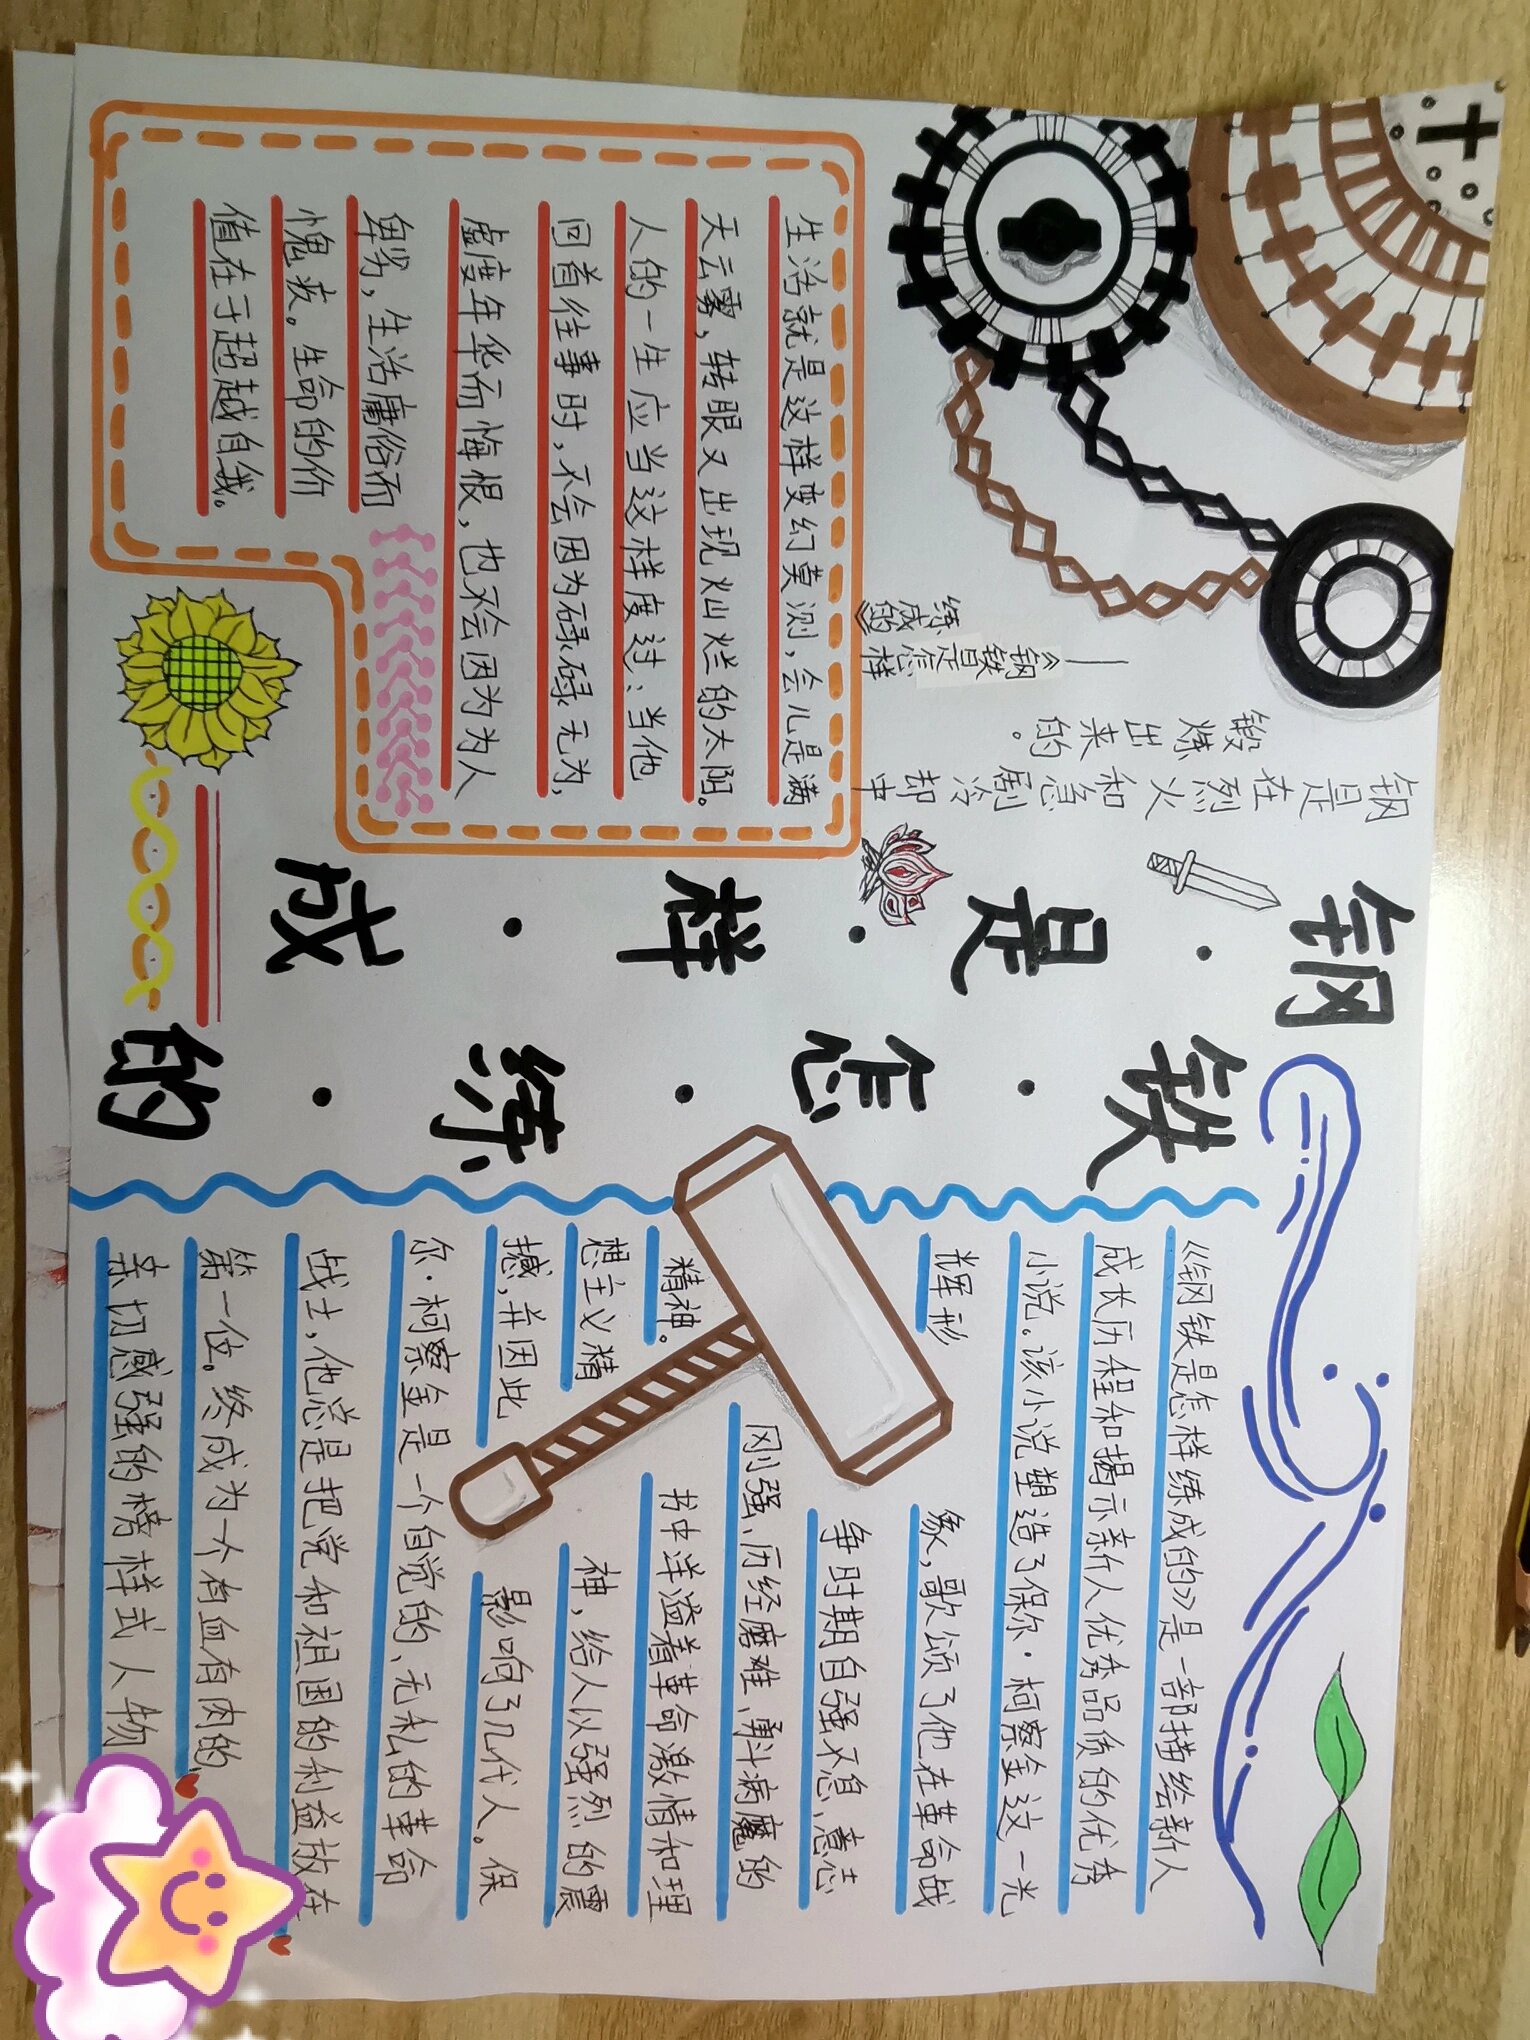 钢是在烈火和急剧冷却中
锻炼出来的。
——《钢铁是怎样
练成的》
生活就是这样变幻莫测，会儿是满
天云雾，转眼又出现灿烂的太阳。
人的一生应当这样度过：当他
回首往事时，不会因为碌碌无为，
虚度年华而悔恨，也不会因为为人
卑劣，生活庸俗而
愧疚。生命的价
值在于超越自我。
钢·铁·是·怎·样·练·成·的
《钢铁是怎样练成的》是一部描绘新人
成长历程和揭示新人优秀品质的优秀
小说。该小说塑造了保尔·柯察金这一光
辉形象，歌颂了他在革命战
争时期自强不息、意志
刚强、历经磨难、勇斗病魔的
精神。书中洋溢着革命激情和理
想主义精神，给人以强烈的震
撼，并因此影响了几代人。保
尔·柯察金是一个自觉的、无私的革命
战士，他总是把党和祖国的利益放在
第一位。终成为个有血有肉的
亲切感强的榜样式人物